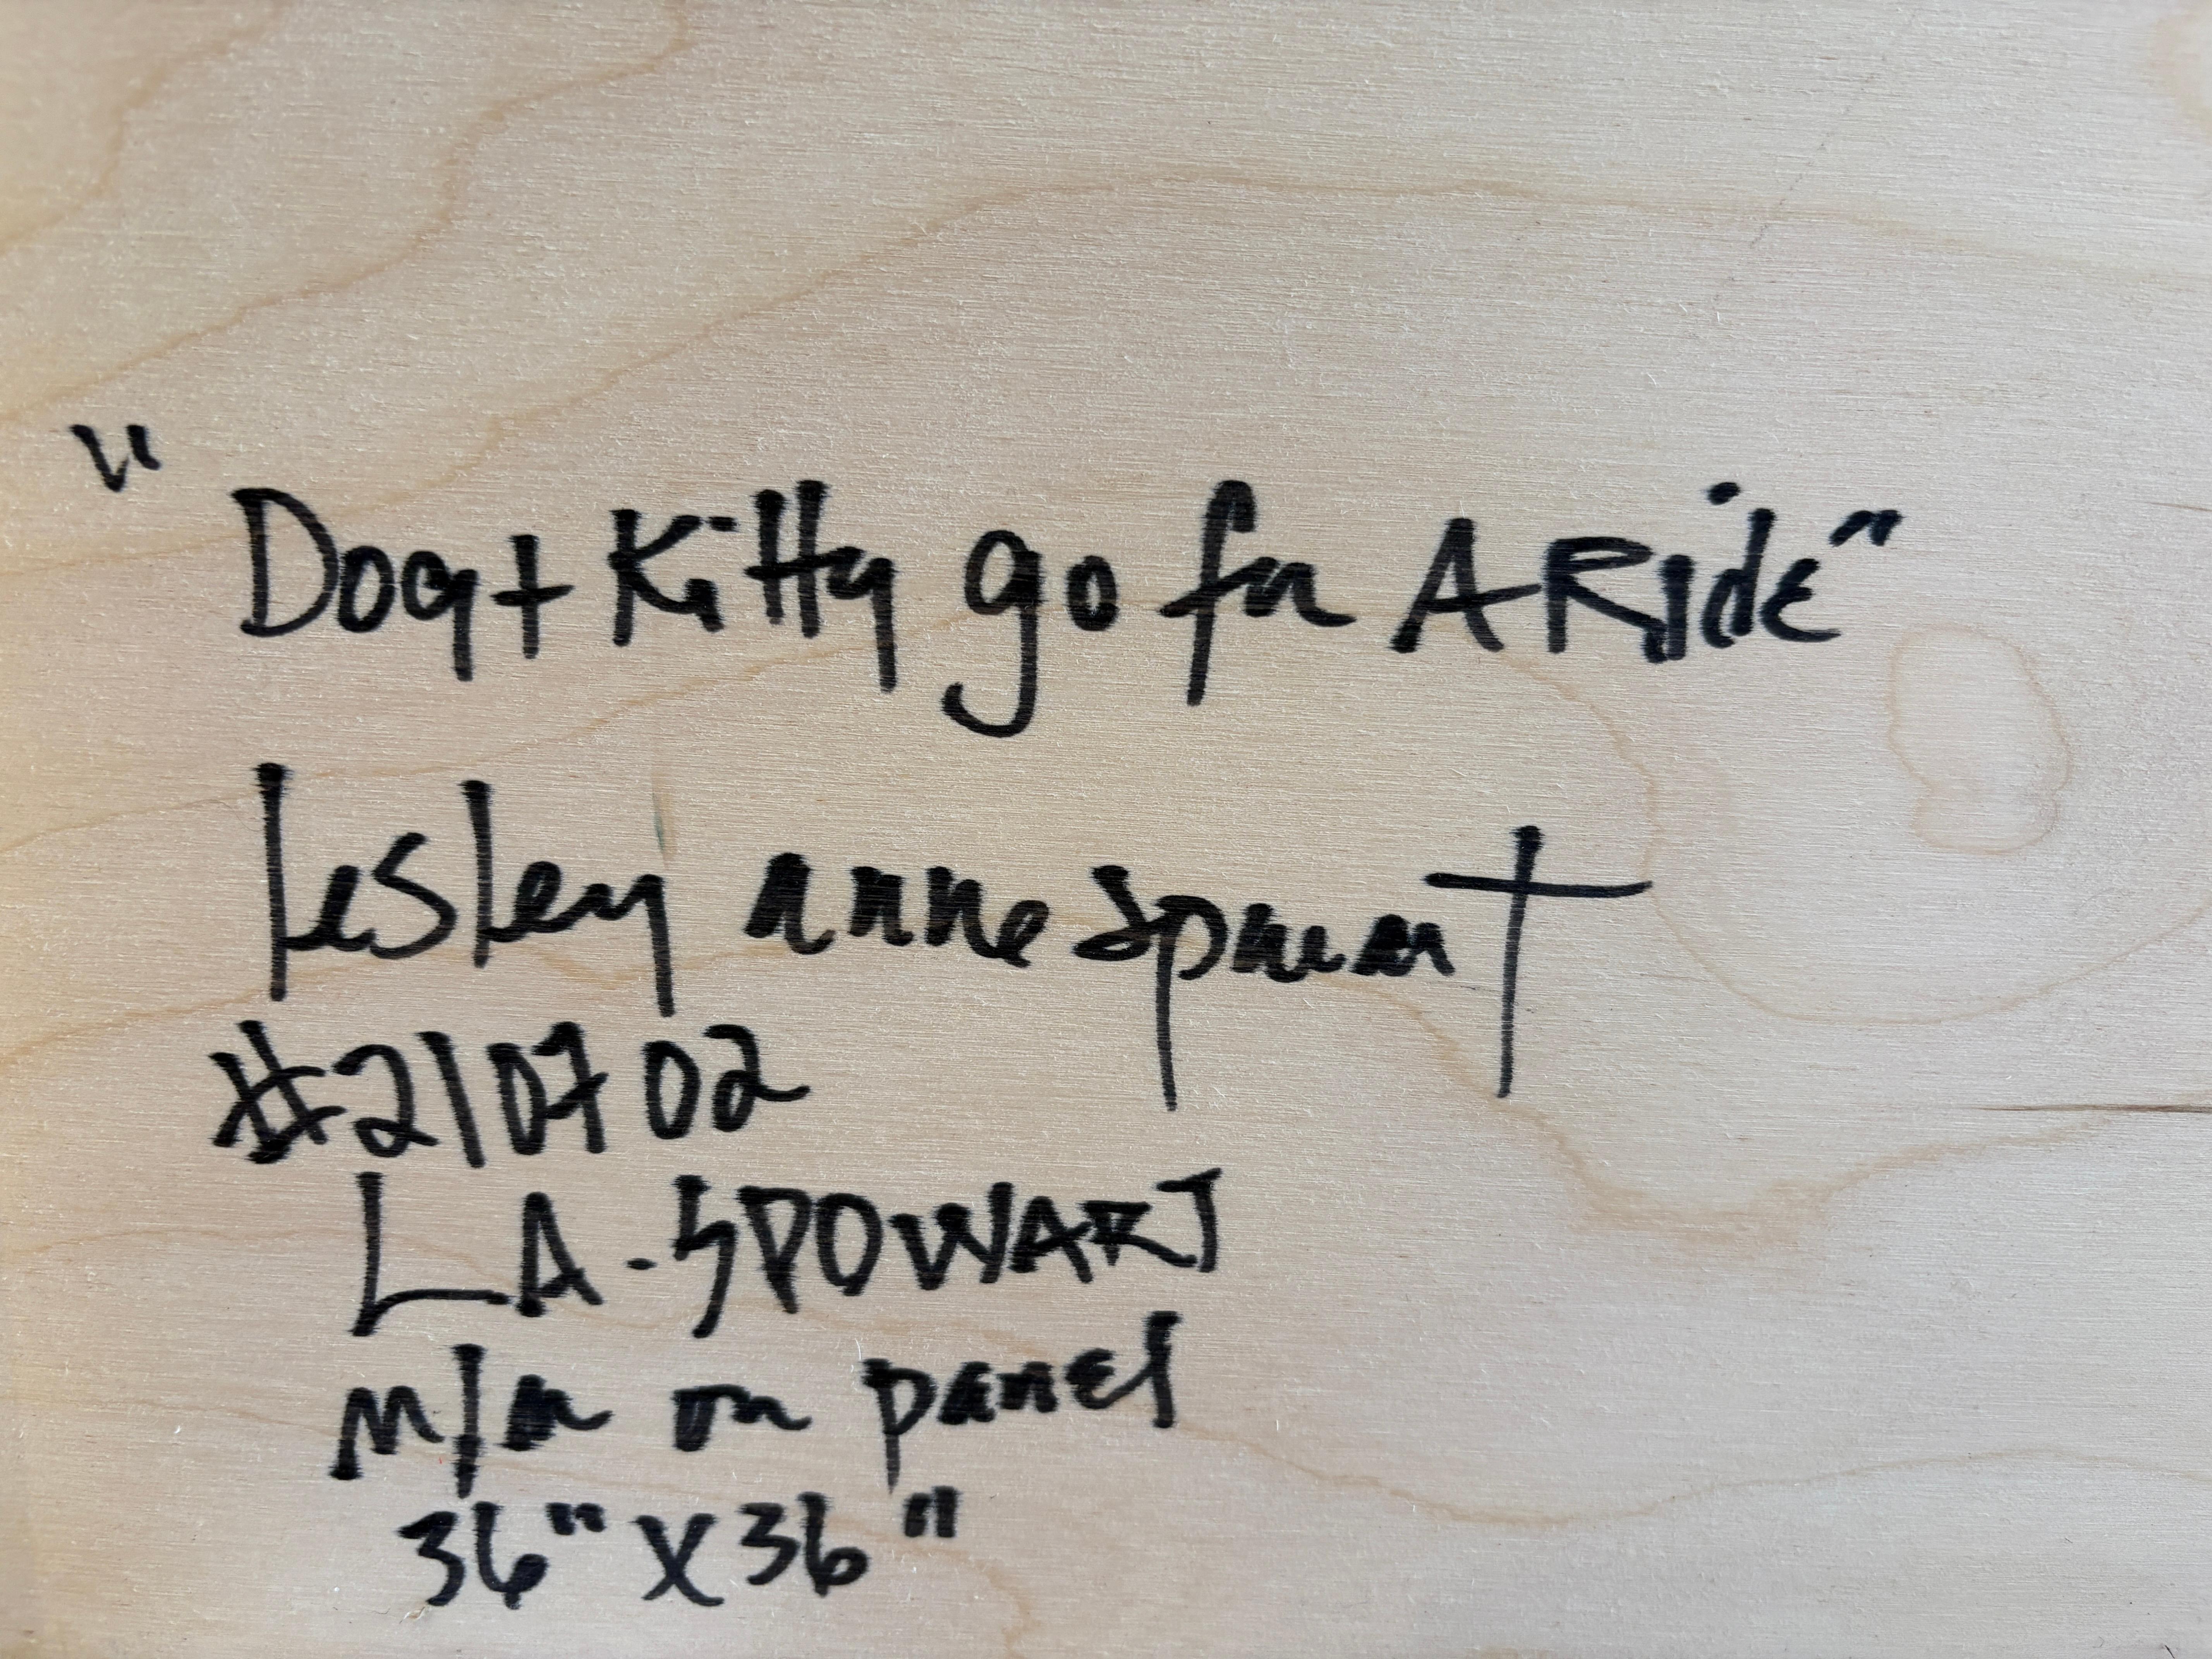 "Dog + Kitty go for A Ride"
Lesley anne Spowart
#210702
LA. SPOWART
m/m on panel
36" X 36"